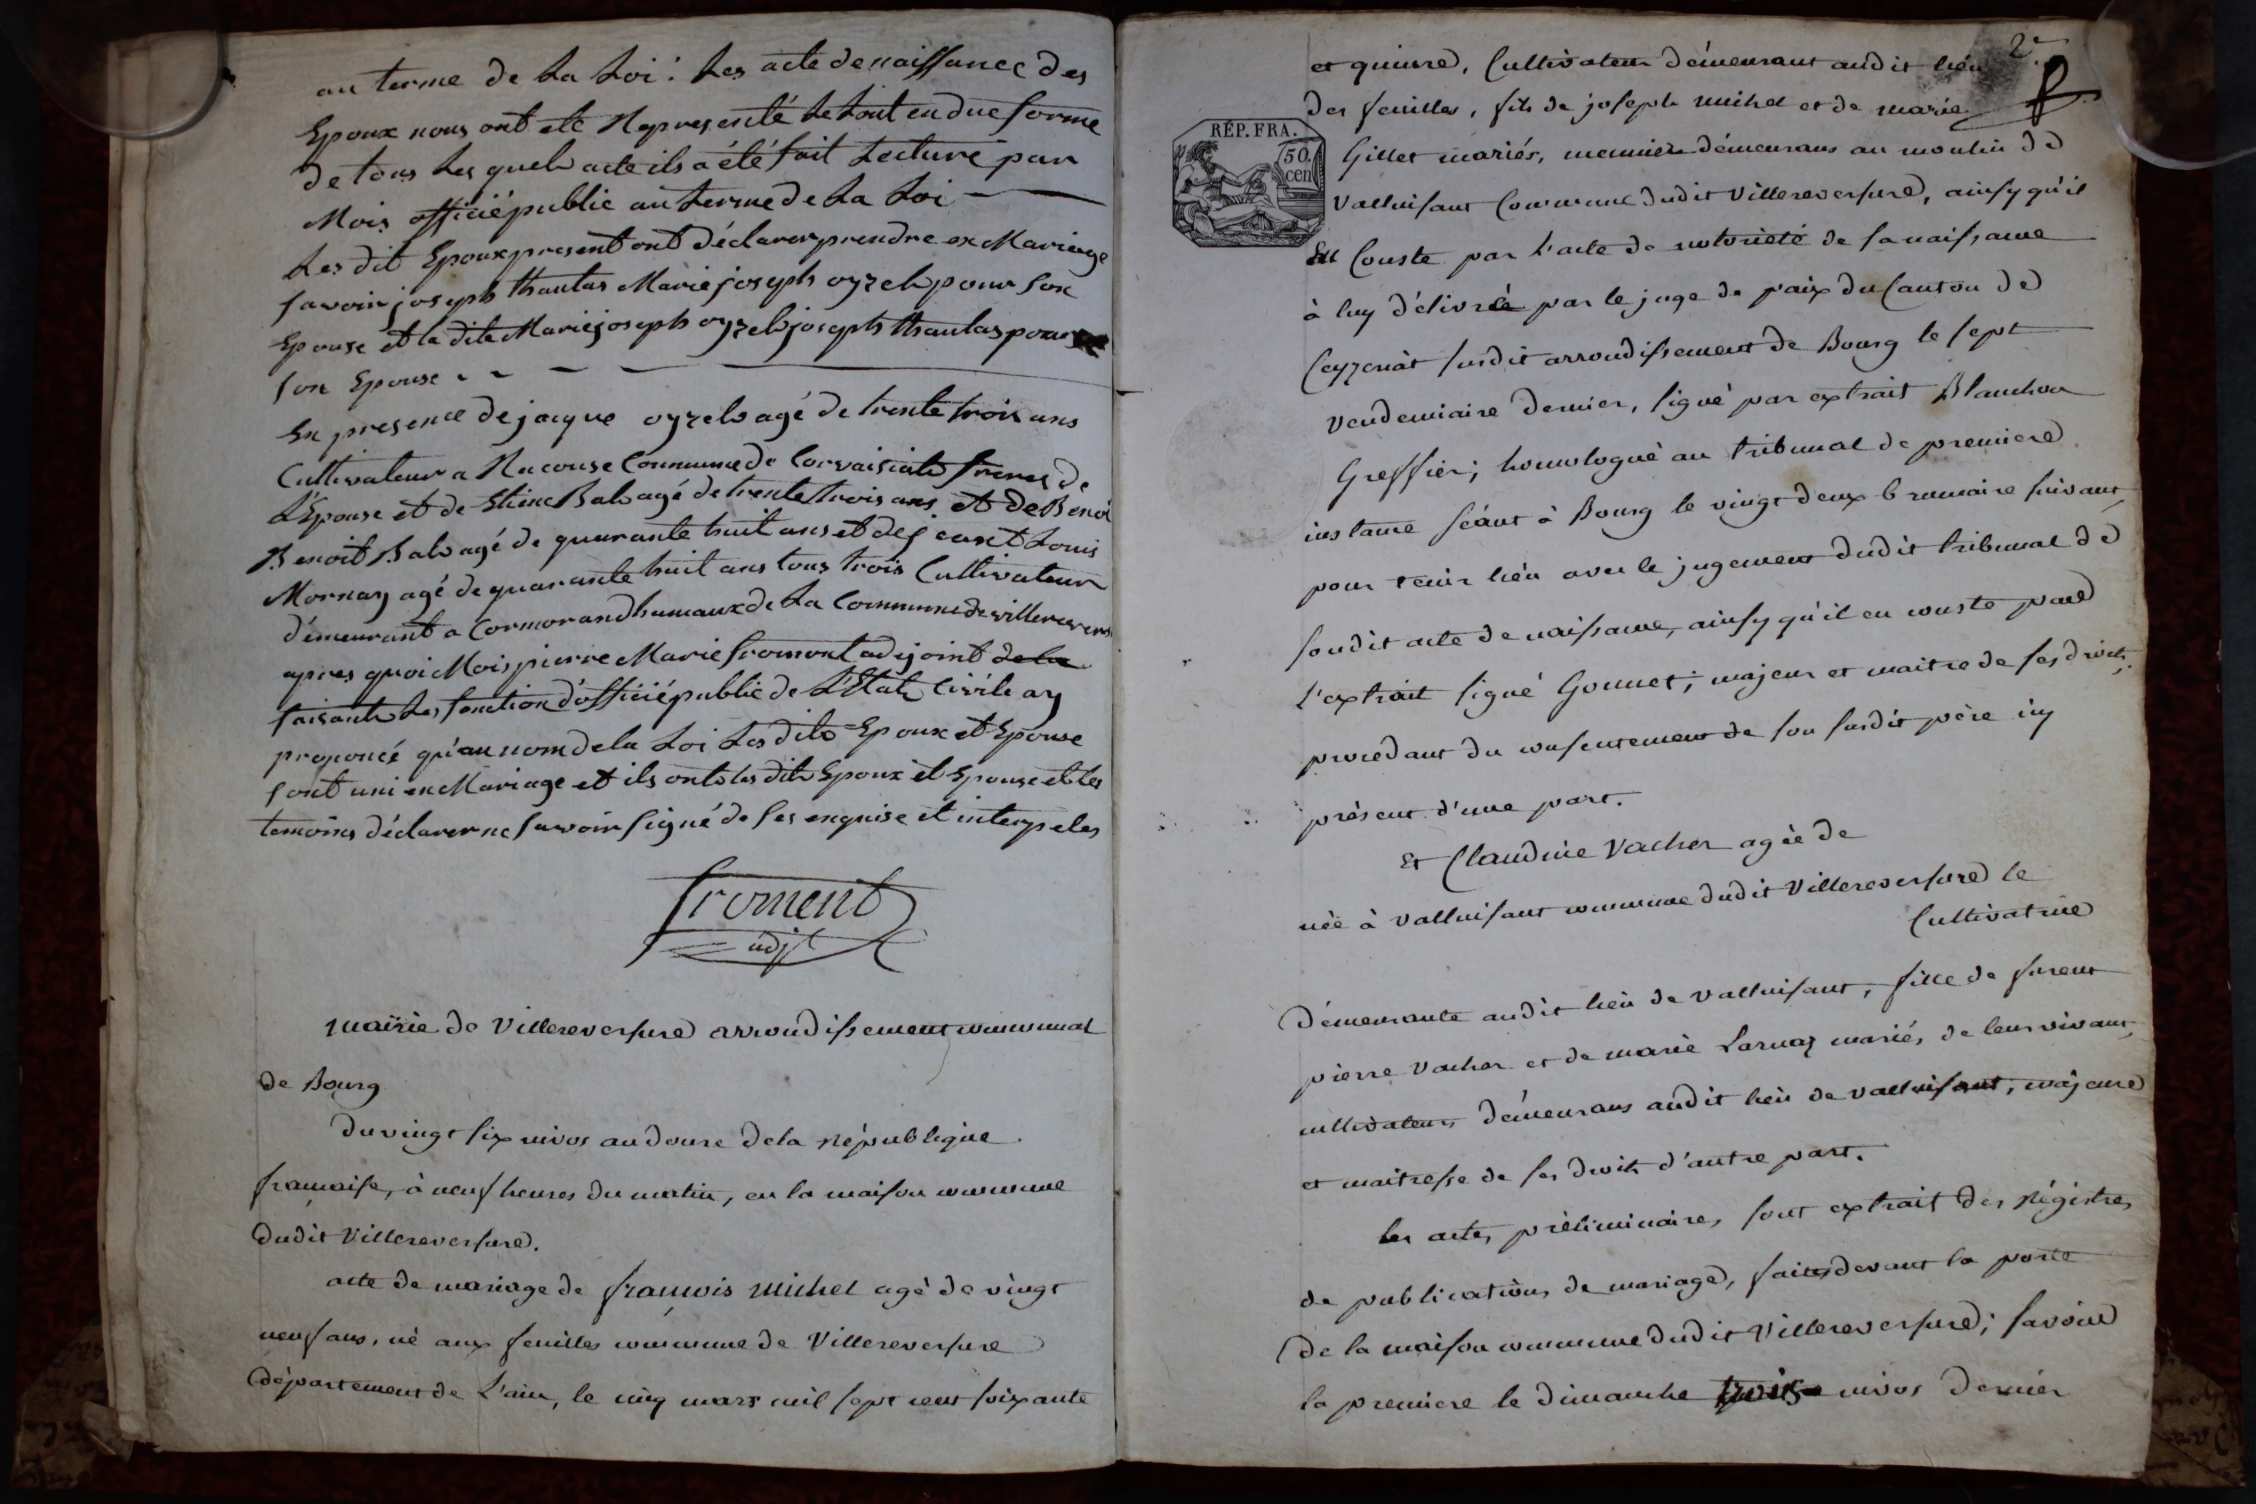 au terme de La Loi : Les acte de naissance des
Epoux nous ont eté Representé Le tout en due forme
de tous Les quels acte ils a été fait Lecture par
Mois officié public au terme de La Loi
Les dit Epoux present ont déclarer prendre ex Mariage
savoir joseph thaulas Marie joseph oyzel pour son
Epouse et la dite Marie joseph oyzel joseph thaulas pour
son Epouse
En presence de jacque oyzel agé de trente trois ans
Cultivateur a Racouse Commune de Corvaisiat freres de
L'Epouse et de Etine Bal agé de trente trois ans et de Benoi
Benoit Bal agé de quarante huit ans et de Louis
Mornay agé de quarante huit ans tous trois Cultivateur
démeurant a Cormorand hamaux de La Commune de villerevers
apres quoi Mois pierre Marie fromont adijoint de la
faisant Les fonction d'officié public de L'Etat Civile ay
prononcé qu'au nom de la Loi Les dits Epoux et Epouse
sont uni en Mariage et ils ont les dits Epoux et Epouse et les
temoins déclarer ne savoir signé de ses enquise et interpeles
froment
adjt
Mairie de Villereversure arrondissement communal
de Bourg
du vingt six nivos an douze de la République
française, à neuf heures du matin, en la maison commune
dudit Villereversure.
acte de mariage de françois Michel agé de vingt
neuf ans, né aux feuilles commune de Villereversure
département de L'ain, le cinq mars mil sept cent soixante
2e
et quinze, Cultivateur démeurant audit lieu
des feuilles, fils de joseph Michel et de marie
RÉP. FRA.
50
cen
Gillet mariés, meunier démeurans au moulin de
Valluisant Commune dudit Villereversure, ainsy qu'il
en Conste par l'acte de notorieté de sa naissance
à luy délivré par le juge de paix du Canton de
Ceyzeriat susdit arrondissement de Bourg le sept
vendemiaire dernier, signé par extrait Blanchon
Greffier; homologué au tribunal de premiere
instance séant à Bourg le vingt deux brumaire suivant,
pour tenir lieu avec le jugement dudit tribunal de
sondit acte de naissance, ainsy qu'il en conste par
l'extrait signé Gonnet; majeur et maitre de ses droits;
procédant du consentement de son susdit père icy
présent d'une part.
Et Claudine Vacher agée de
née à Valluisant commune dudit Villereversure le
Cultivatrice
démeurante audit lieu de Valluisant, fille de furent
pierre Vacher et de marie Larnaz mariés, de leur vivant,
cultivateurs démeurans audit lieu de Valluisant, majeure
et maitresse de ses droits d'autre part.
les actes préliminaires sont extrait des Régistres
de publications de mariage, faites devant la porte
de la maison commune dudit Villereversure; savoir
la premiere le dimanche trois nivos dernier